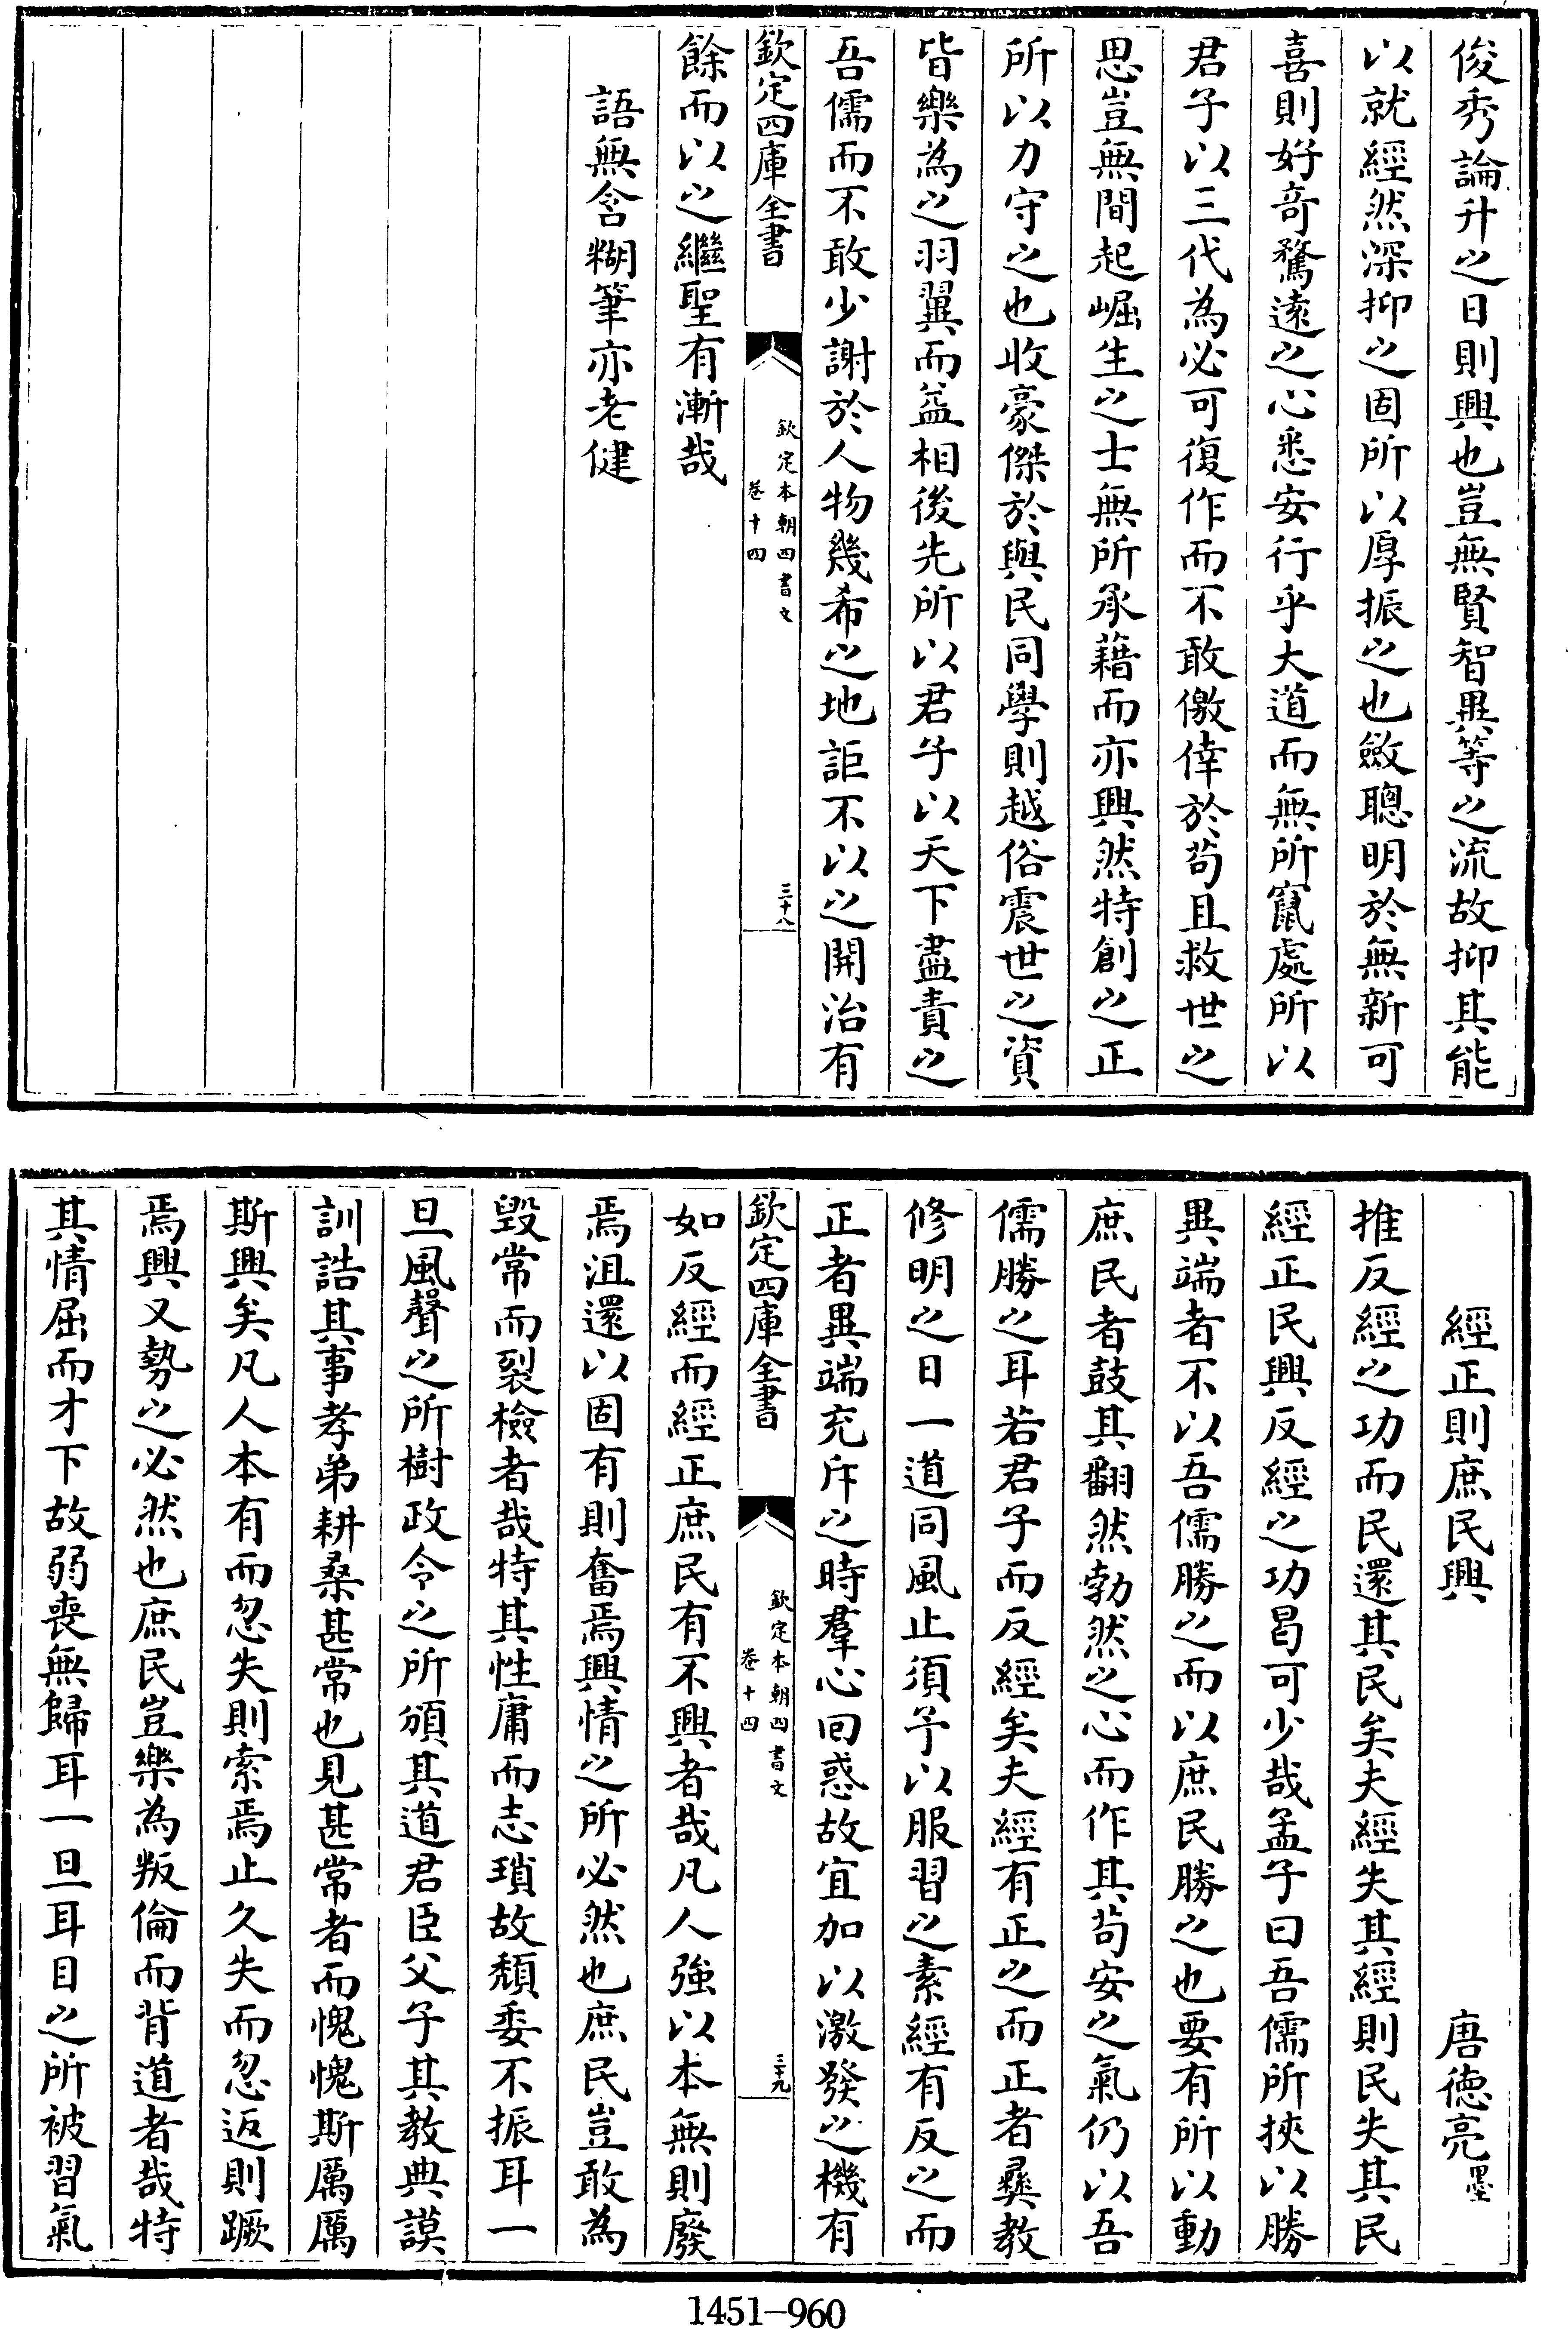 俊秀論升之日則興也豈無賢智異等之流故抑其能
以就經然深抑之固所以厚振之也斂聰明於無新可
喜則好奇騖遠之心悉安行乎大道而無所竄處所以
君子以三代為必可復作而不敢僥倖於苟且救世之
思豈無間起崛生之士無所承藉而亦興然特創之正
所以力守之也收豪傑於與民同學則越俗震世之資
皆樂為之羽翼而益相後先所以君子以天下盡責之
吾儒而不敢少謝於人物幾希之地詎不以之開治有
欽定四庫全書
欽定本朝四書文
卷十四
三十八
餘而以之繼聖有漸哉
語無含糊筆亦老健
經正則庶民興
唐德亮墨
推反經之功而民還其民矣夫經失其經則民失其民
經正民興反經之功曷可少哉孟子曰吾儒所挾以勝
異端者不以吾儒勝之而以庶民勝之也要有所以動
庶民者鼓其翻然勃然之心而作其苟安之氣仍以吾
儒勝之耳若君子而反經矣夫經有正之而正者彞教
修明之日一道同風止須予以服習之素經有反之而
正者異端充斥之時羣心囘惑故宜加以激發之機有
欽定四庫全書
欽定本朝四書文
卷十四
三十九
如反經而經正庶民有不興者哉凡人強以本無則廢
焉沮還以固有則奮焉興情之所必然也庶民豈敢為
毀常而裂檢者哉特其性庸而志瑣故頽委不振耳一
旦風聲之所樹政令之所頒其道君臣父子其教典謨
訓誥其事孝弟耕桑甚常也見甚常者而愧愧斯厲厲
斯興矣凡人本有而忽失則索焉止久失而忽返則蹶
焉興又勢之必然也庶民豈樂為叛倫而背道者哉特
其情屈而才下故弱喪無歸耳一旦耳目之所被習氣
1451-960